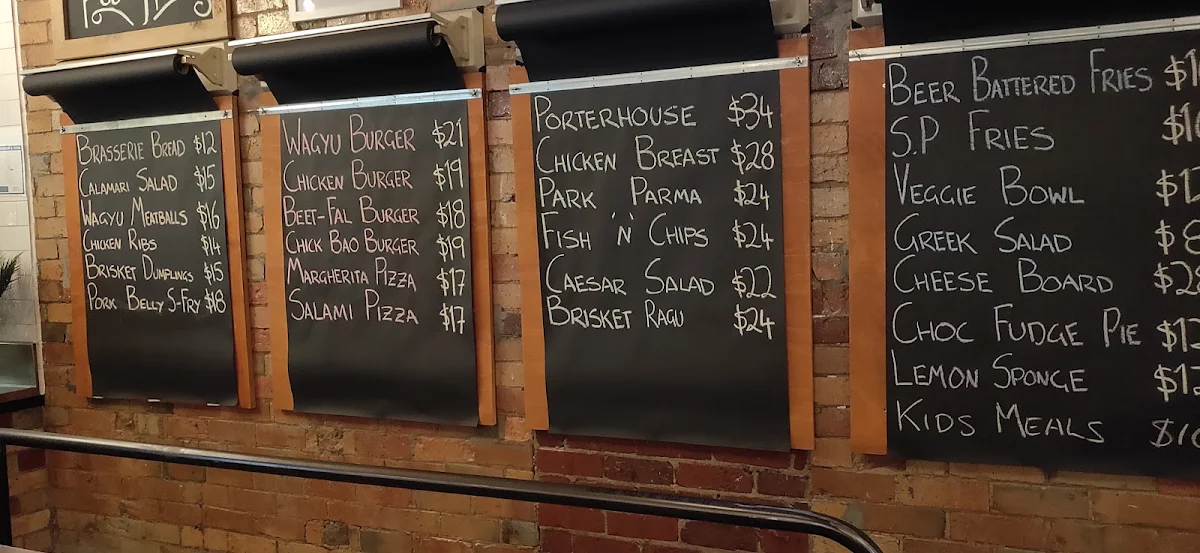 BRASSERIE BREAD $12
CALAMARI SALAD $15
WAGYU MEATBALLS $16
CHICKEN RIBS $14
BRISKET DUMPLINGS $15
PORK BELLY S-FRY $18
WAGYU BURGER $21
CHICKEN BURGER $19
BEET-FAL BURGER $18
CHICK BAO BURGER $19
MARGHERITA PIZZA $17
SALAMI PIZZA $17
PORTERHOUSE $34
CHICKEN BREAST $28
PARK PARMA $24
FISH 'N' CHIPS $24
CAESAR SALAD $22
BRISKET RAGU $24
BEER BATTERED FRIES
S.P FRIES
VEGGIE BOWL
GREEK SALAD
CHEESE BOARD
CHOC FUDGE PIE
LEMON SPONGE
KIDS MEALS